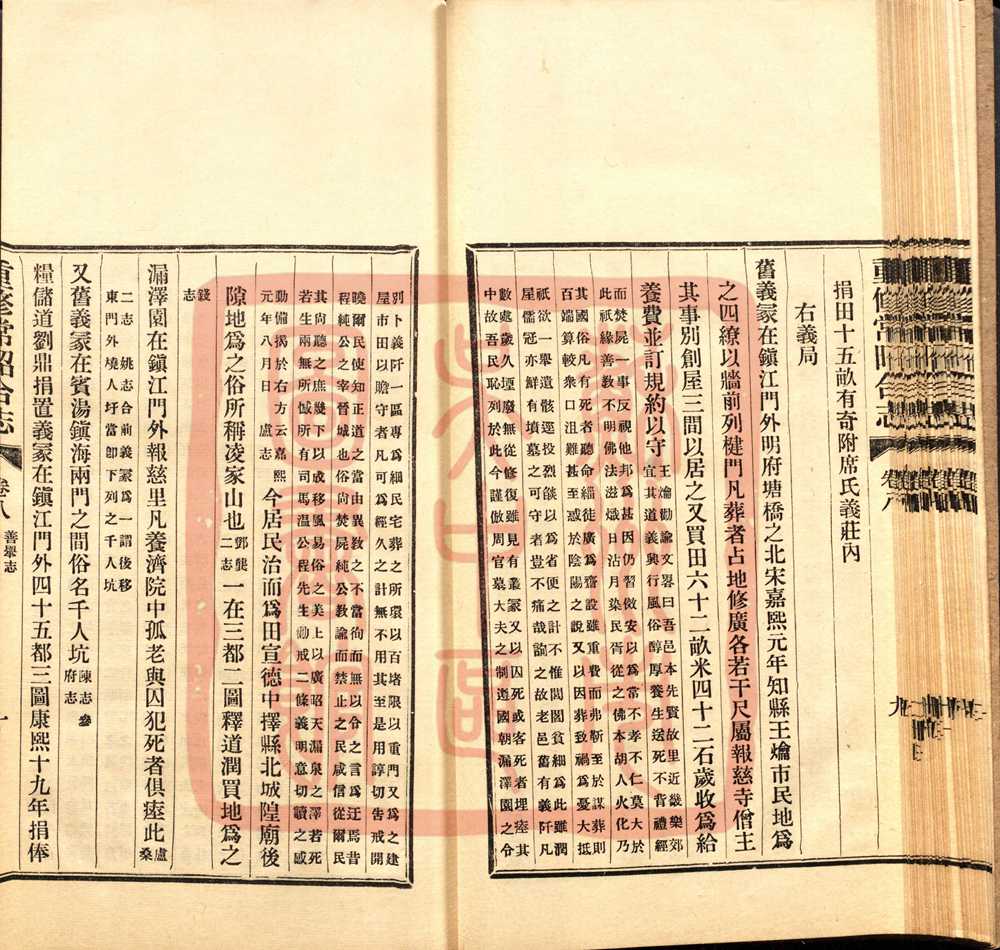 捐田十五畝有奇附席氏義莊內
右義局
舊義冢在鎮江門外明府塘橋之北宋嘉熙元年知縣王爚市民地爲
之四繚以牆前列楗門凡葬者占地修廣各若干尺屬報慈寺僧主
其事別創屋三間以居之又買田六十二畝米四十二石歲收爲給
養費並訂規約以守
王爚勸諭文畧曰吾邑本先賢故里近畿樂郊
宜其道義興行風俗醇厚養生送死不背禮經
而焚屍一事反視他邦爲甚因仍習倣安以爲常不孝不仁莫大於
此祇緣善教不明佛法滋熾日沾月染民胥從之佛本胡人火化乃
其國俗凡有死者聽命緇徒廣爲齋設雖重費而弗靳至於謀葬則
百端算較衆口沮難甚至惑於陰陽之說又以因葬致禍爲憂大抵
祇欲一舉遺骸逕投烈燄以爲省便之計不惟閭閻貧細爲此雖潤
屋儒冠亦鮮有墳墓之可守者豈不痛哉詢之故老邑舊有義阡凡
數處歲久堙廢無從修復雖見有叢冢又以囚死或客死者埋瘞其
中故吾民恥列於此今謹倣周官墓大夫之制道國朝漏澤園之令
別卜義阡一區專爲細民宅葬之所環以百堵限以重門又爲之建
屋市田以贍守者凡可爲經久之計無不用其至是用諄切告戒開
曉爾民使知正道之當由異教之不當徇而無以令之言爲迂焉昔
程純公之宰晉城也俗尙焚屍純公教諭而禁止之民咸信從爾民
其向聽之庶幾下以成移風易俗之美上以廣昭天漏泉之澤若死
若生兩無所憾有司馬溫公程先生勸戒二條義明意切讀之感
動備揭於右方云嘉熙
元年八月日盧志
今居民治而爲田宣德中擇縣北城隍廟後
隙地爲之俗所稱凌家山也
鄧龔
二志
一在三都二圖釋道潤買地爲之
錢
志
漏澤園在鎮江門外報慈里凡養濟院中孤老與囚犯死者俱瘞此
盧
桑
二志 姚志合前義冢爲一謂後移
東門外燒人圩當卽下列之千人坑
又舊義冢在賓湯鎮海兩門之間俗名千人坑
陳志參
府志
糧儲道劉鼎捐置義冢在鎮江門外四十五都三圖康熙十九年捐俸
重修常昭合志 卷八 善舉志 十